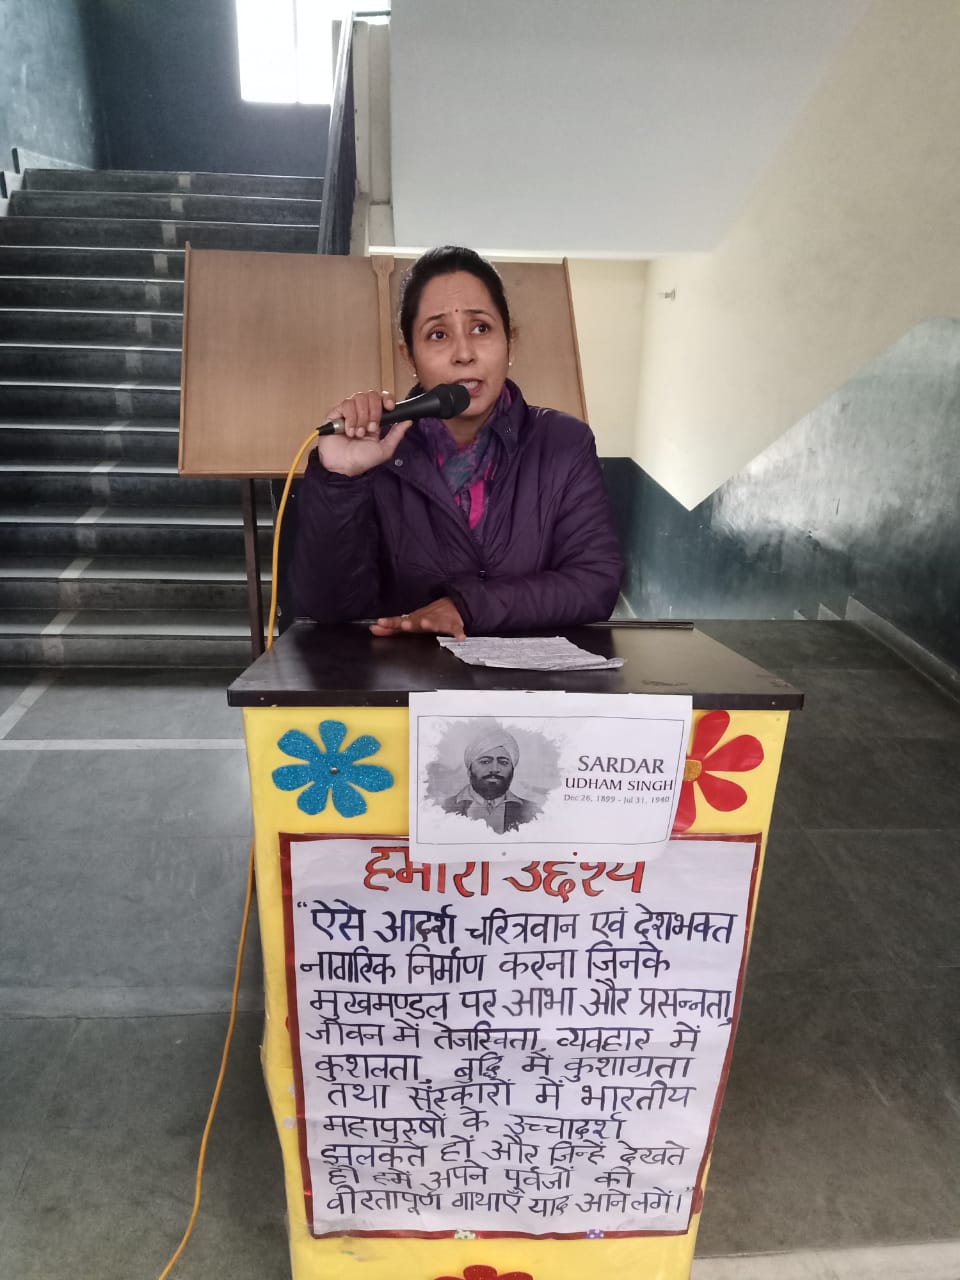 SARDAR
UDHAM SINGH
Dec 26, 1899 - Jul 31, 1940
हमारा उद्देश्य
"ऐसे आदर्श चरित्रवान एवं देशभक्त
नागरिक निर्माण करना जिनके
मुखमण्डल पर आभा और प्रसन्नता,
जीवन में तेजस्विता, व्यवहार में
कुशलता, बुद्धि में कुशाग्रता
तथा संस्कारों में भारतीय
महापुरुषों के उच्चादर्श
झलकते हों और जिन्हें देखते
ही हमें अपने पूर्वजों की
वीरतापूर्ण गाथाएँ याद आने लगें।"